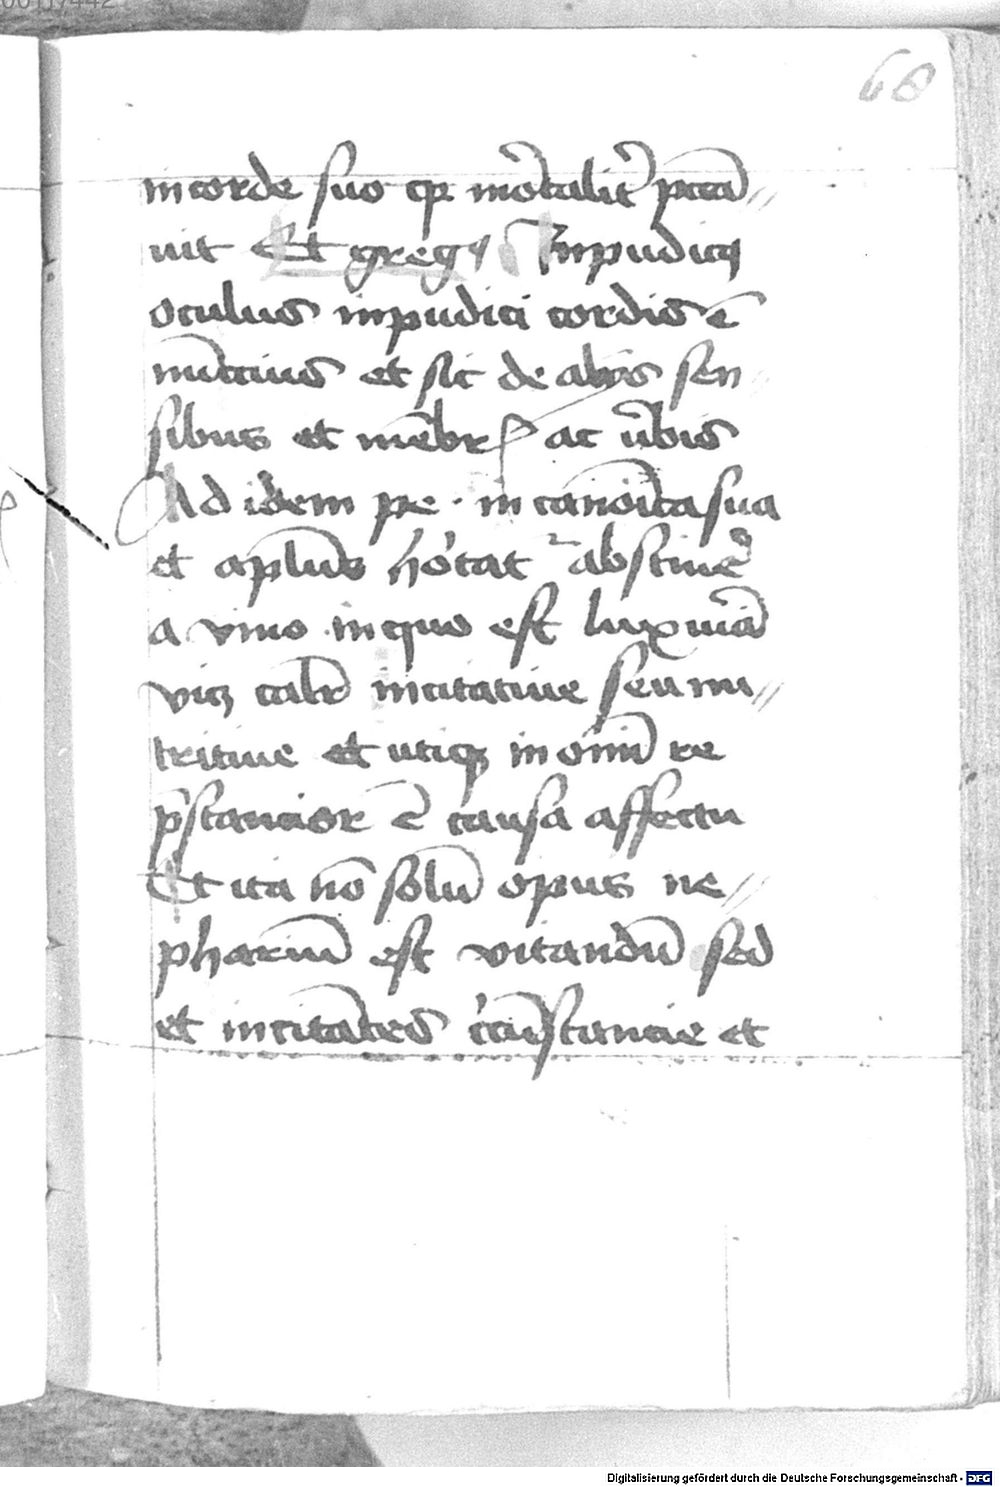 68
in corde suo qꝛ mo᷒talit᷒ pcca᷒//
uit Et greg9 Inpudic9
oculus inpudici cordis ē
nūctius et sic de alijs sen
sibus et mēbrꝭ ac v̄bis
Ad idem pe · in canōīca sua
et aplus hortat᷒ abstinē
a vino in quo est luxuīa
vicꝫ calr̄ incitatiue seu nu//
tritiue et utiqꝫ in om̄i re
p̄stancior ē causa affectu
Et ita nō solū opus ne//
pharīū est vitandū sed
et incitātes c᷒cūstancie et
Digitalisierung gefördert durch die Deutsche Forschungsgemeinschaft - DFG